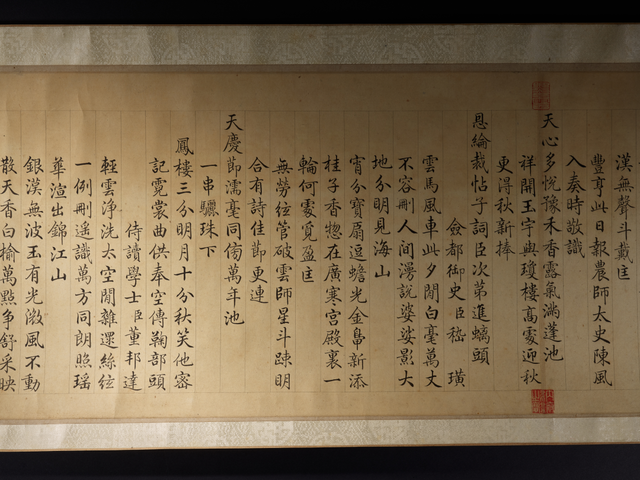 漢無聲斗戴匡
豐亨此日報農師太史陳風
入奏時敬識
天心多悅豫禾香露氣滿蓬池
祥開玉宇與瓊樓高處迎秋
更得秋新捧
恩綸裁帖子詞臣次第進螭頭
僉都御史臣嵇璜
雲馬風車此夕閒白毫萬丈
不容刪人间漫說婆娑影大
地分明見海山
宵分寶扇逗蟾光金粟新添
桂子香惣在廣寒宮殿裏一
輪何處覓盈匡
無勞絃管破雲師星斗踈明
合有詩佳節更連
天慶節濡毫同傍萬年池
一串驪珠下
鳳樓三分明月十分秋笑他密
記霓裳曲供奉空傳鞠部頭
侍讀學士臣董邦達
輕雲淨洗太空閒雜還絲絃
一例刪遥識萬方同朗照瑶
華渲出錦江山
銀漢無波玉有光微風不動
散天香白榆萬點爭舒采映